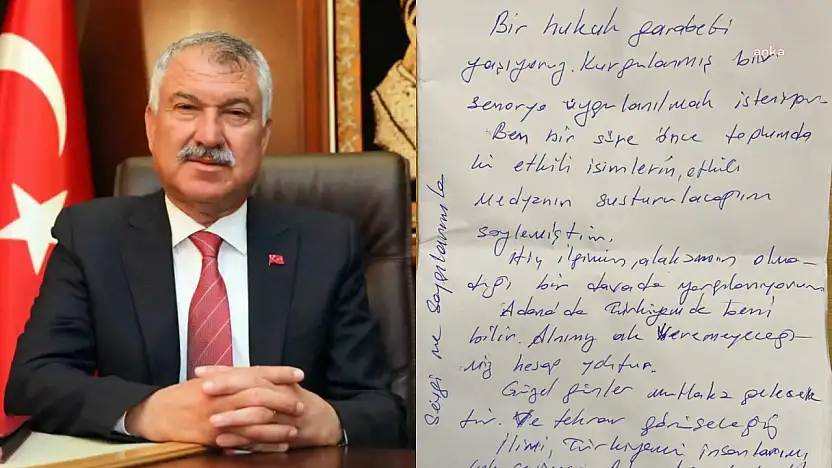 Bir hukuk garabeti
anka
yaşıyoruz. Kurgulanmış bir
senaryo uygulanılmak isteniyor.
Ben bir süre önce toplumda
ki etkili isimlerin, etkili
medyanın susturulacağını
söylemiştim.
Hiç ilgimin, alakamın olma-
dığı bir davada yargılanıyorum
Adana'da Türkiyemde beni
bilir. Alnımız ak veremeyeceği-
miz hesap yoktur.
Güzel günler mutlaka gelecek
tir. Ve tekrar görüşeceğiz
İlimi, Türkiyemi insanlarımı,
Sevgi ve saygılarımla